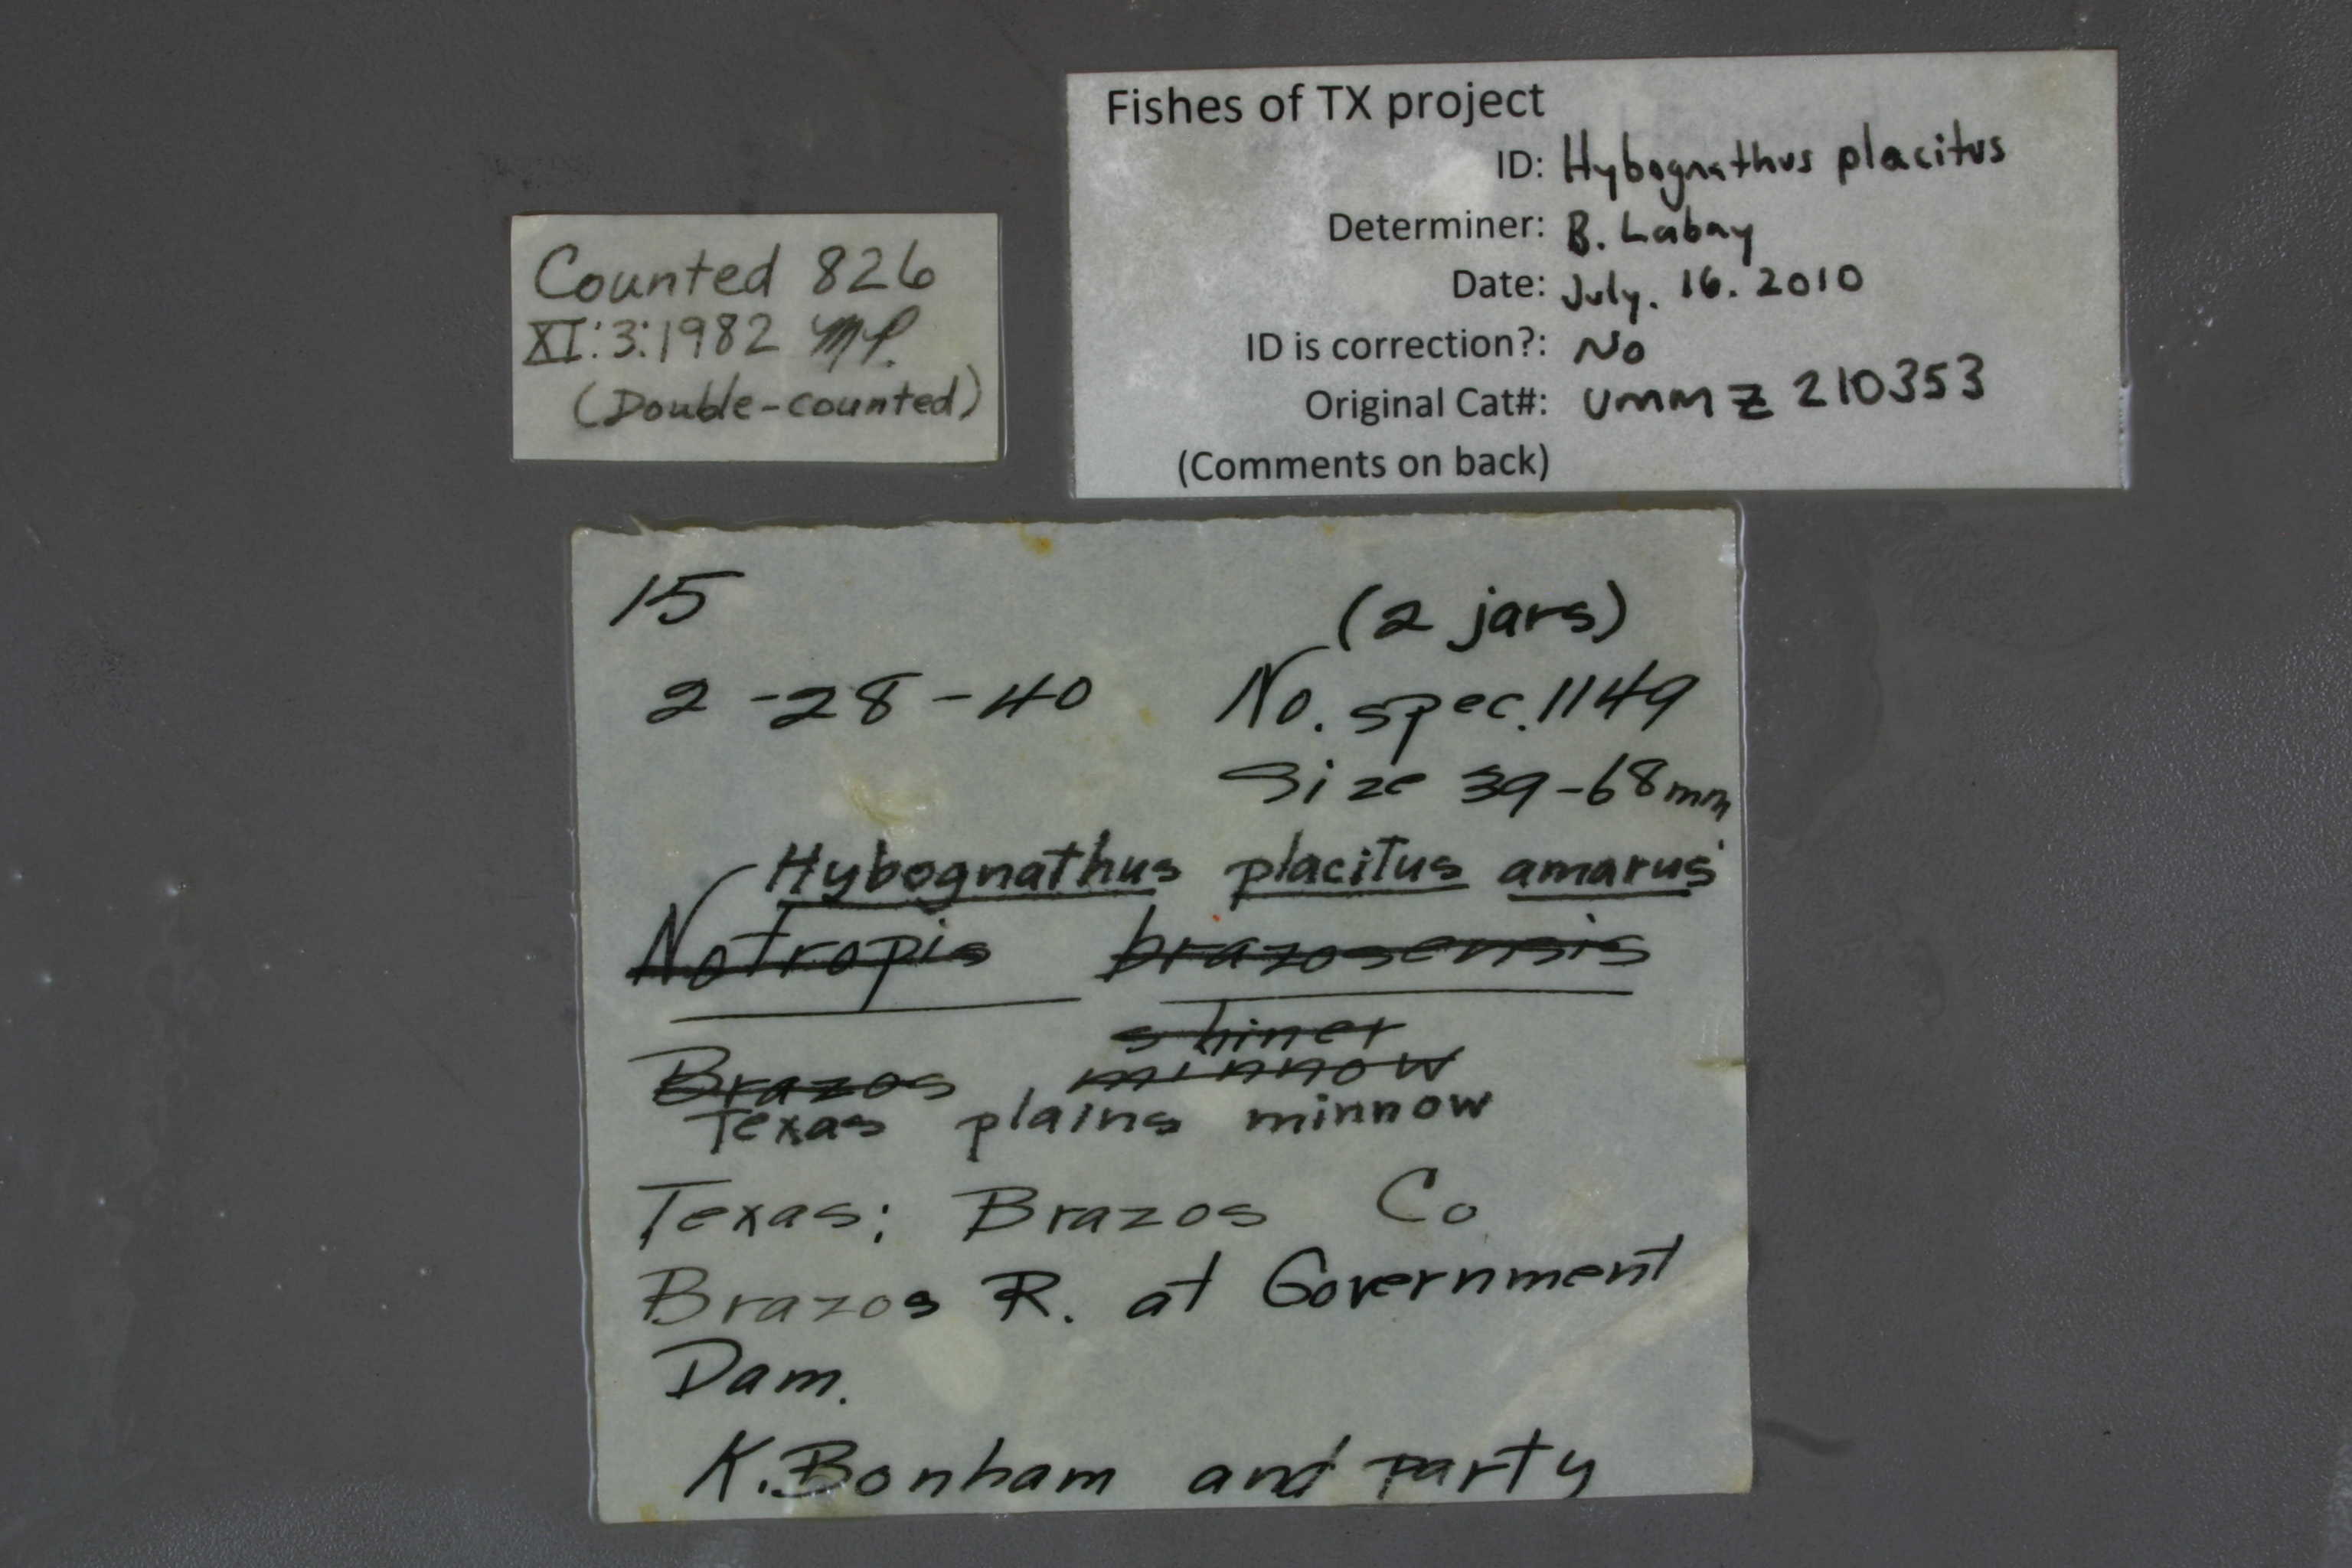 Counted 826
XI:3:1982 MP.
(Double-counted)
Fishes of TX project
ID: Hybognathus placitus
Determiner: B. Labay
Date: July. 16. 2010
ID is correction?: No
Original Cat#: UMMZ 210353
(Comments on back)
15
(2 jars)
2-28-40 No. spec. 1149
Size 39-68mm
Hybognathus placitus amarus
Notropis brazosensis
shiner
Brazos minnow
Texas plains minnow
Texas: Brazos Co
Brazos R. at Government
Dam.
K. Bonham and party